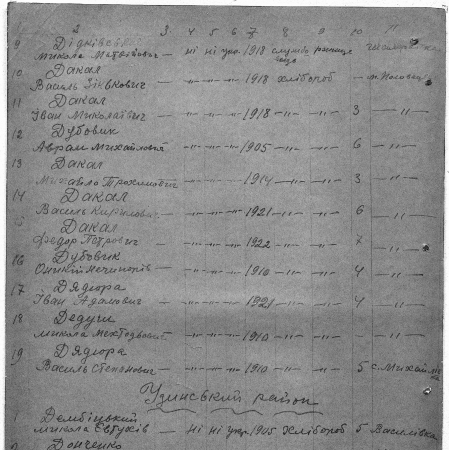 1 2 3 4 5 6 7 8 9 10 11
9 Дідківський
Микола Матвійович — ні ні укр. 1918 служб.
10 Дакал
Василь — „ — „ — „ — 1918 хлібороб — „ —
11 Дакал
Іван Миколайович — „ — „ — „ — 1918 — „ — „ — 3 — „ —
12 Дубовик
Аврам Михайлович — „ — „ — „ — 1905 — „ — „ — 6 — „ —
13 Дакал
Михайло Трохимович — „ — „ — „ — 1914 — „ — „ — 3 — „ —
14 Дакал
Василь Кирилович — „ — „ — „ — 1921 — „ — „ — 6 — „ —
Дакал
Федор Петрович — „ — „ — „ — 1922 — „ — „ — 7 — „ —
16 Дубовик
Оникій — „ — „ — „ — 1910 — „ — „ — 4 — „ —
17 Дядюра
Іван Адамович — „ — „ — „ — 1921 — „ — „ — 4 — „ —
18 Дедуги
Микола — „ — „ — „ — 1910 — „ — „ — - — „ —
19 Дядюра
Василь Степанович — „ — „ — „ — 1910 — „ — „ — 5
Узинський район
1 Дембіцький
Микола Євтухів — ні ні укр. 1905 Хлібороб 5 Василівка
2 Донченко